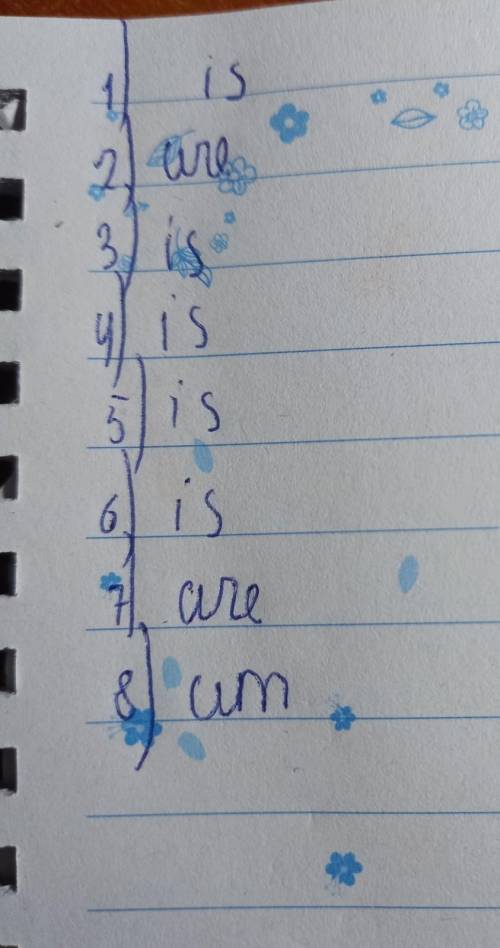 1) is
2) are
3) is
4) is
5) is
6) is
7) are
8) am